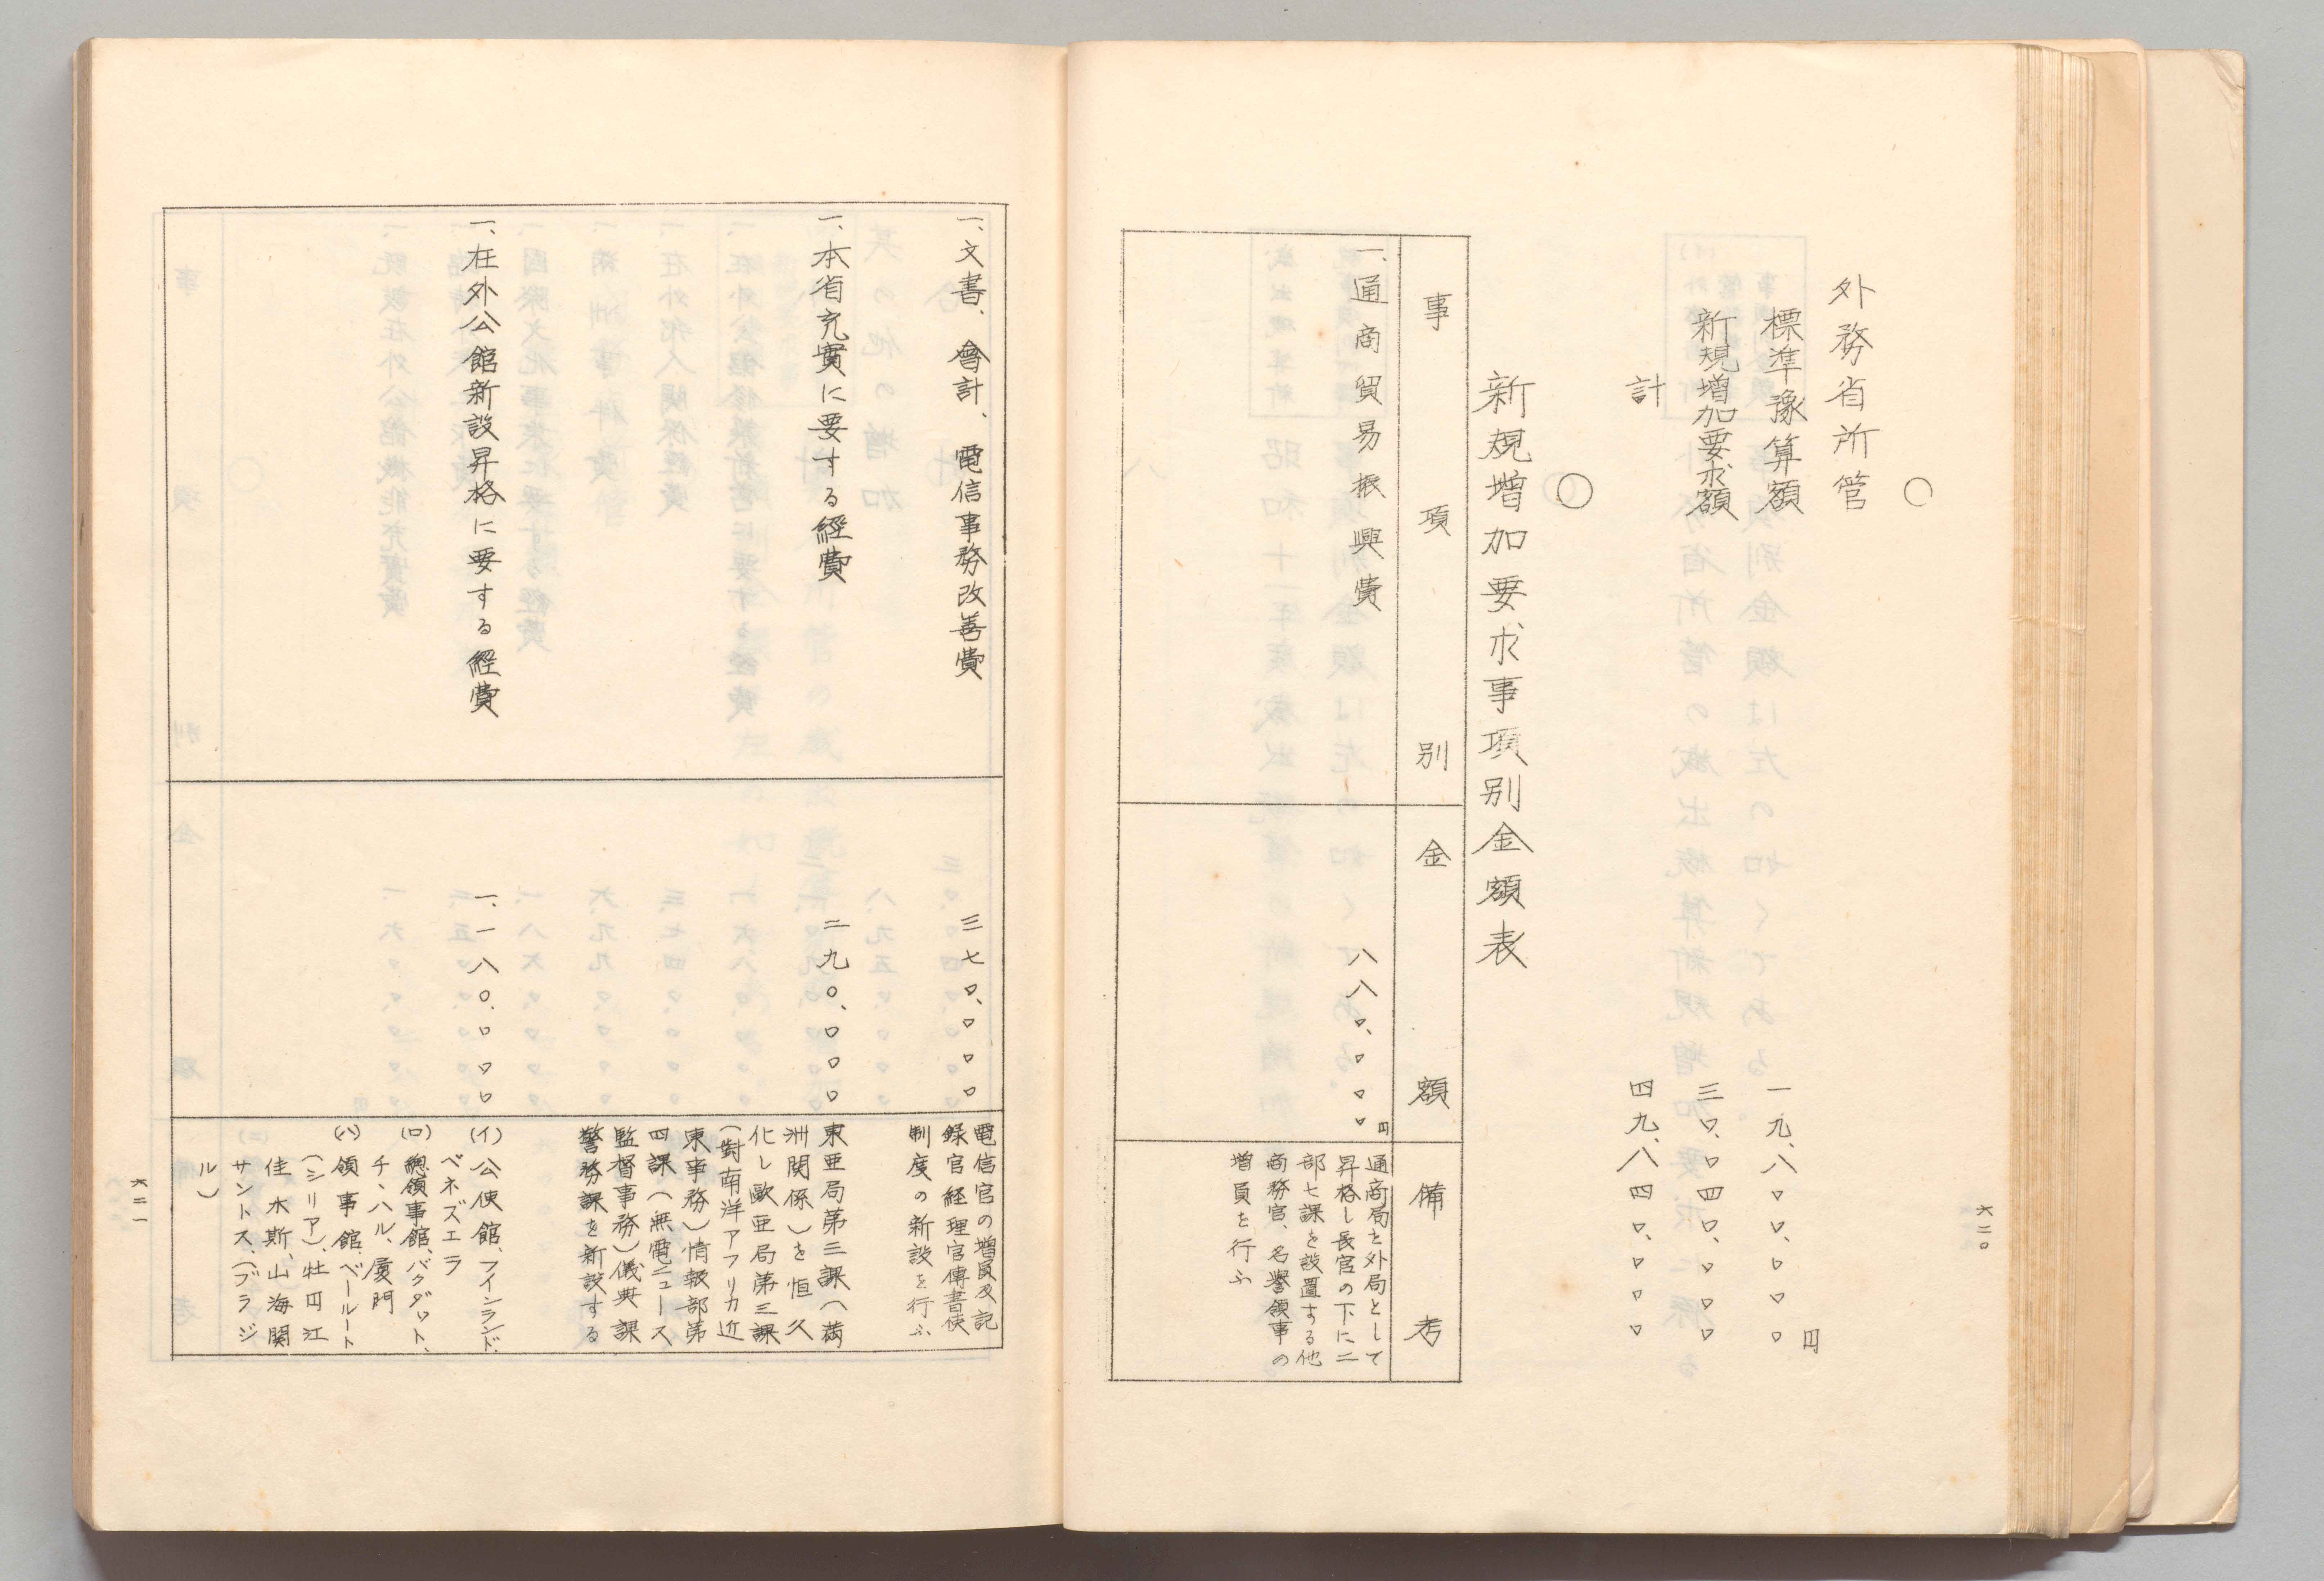 ○
外務省所管
標準豫算額 一九、八〇〇、〇〇〇円
新規増加要求額 三〇、〇四〇、〇〇〇
計 四九、八四〇、〇〇〇
○
新規増加要求事項別金額表
事項別 金額 備考
一、通商貿易振興費 八八〇、〇〇〇円
通商局を外局として
昇格し長官の下に二
部七課を設置する他
商務官、名譽領事の
増員を行ふ
六二〇
一、文書、會計、電信事務改善費 三七〇、〇〇〇
電信官の増員及記
録官経理官傳書使
制度の新設を行ふ
一、本省充實に要する経費 二九〇、〇〇〇
東亜局第三課(満
洲関係)を恒久
化し歐亜局第三課
(對南洋アフリカ近
東事務)情報部第
四課(無電ニュース
監督事務)儀典課
警務課を新設する
一、在外公館新設昇格に要する経費 一、一八〇、〇〇〇
(イ)公使館、フインランド、
ベネズエラ
(ロ)總領事館、バクダット、
チ、ハル、厦門
(ハ)領事館、ベールート
(シリア)、牡円江
佳木斯、山海関
サントス、(ブラジ
ル)
六二一